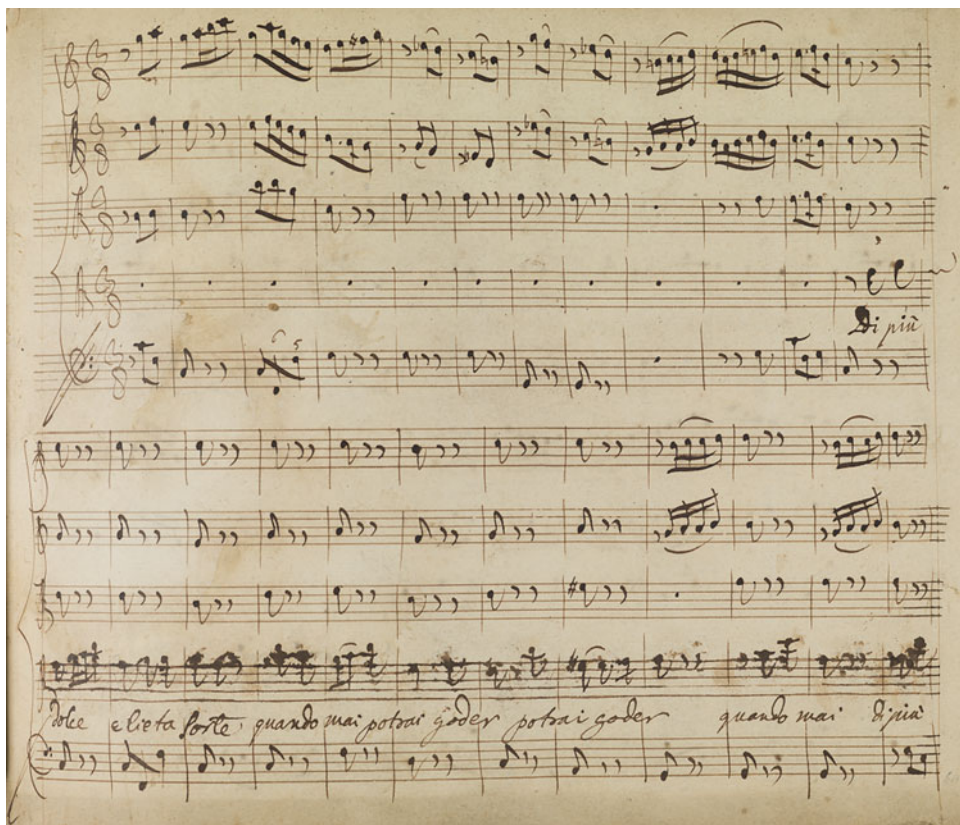 Di più
dolce e lieta sorte, quando mai potrai goder potrai goder quando mai di più